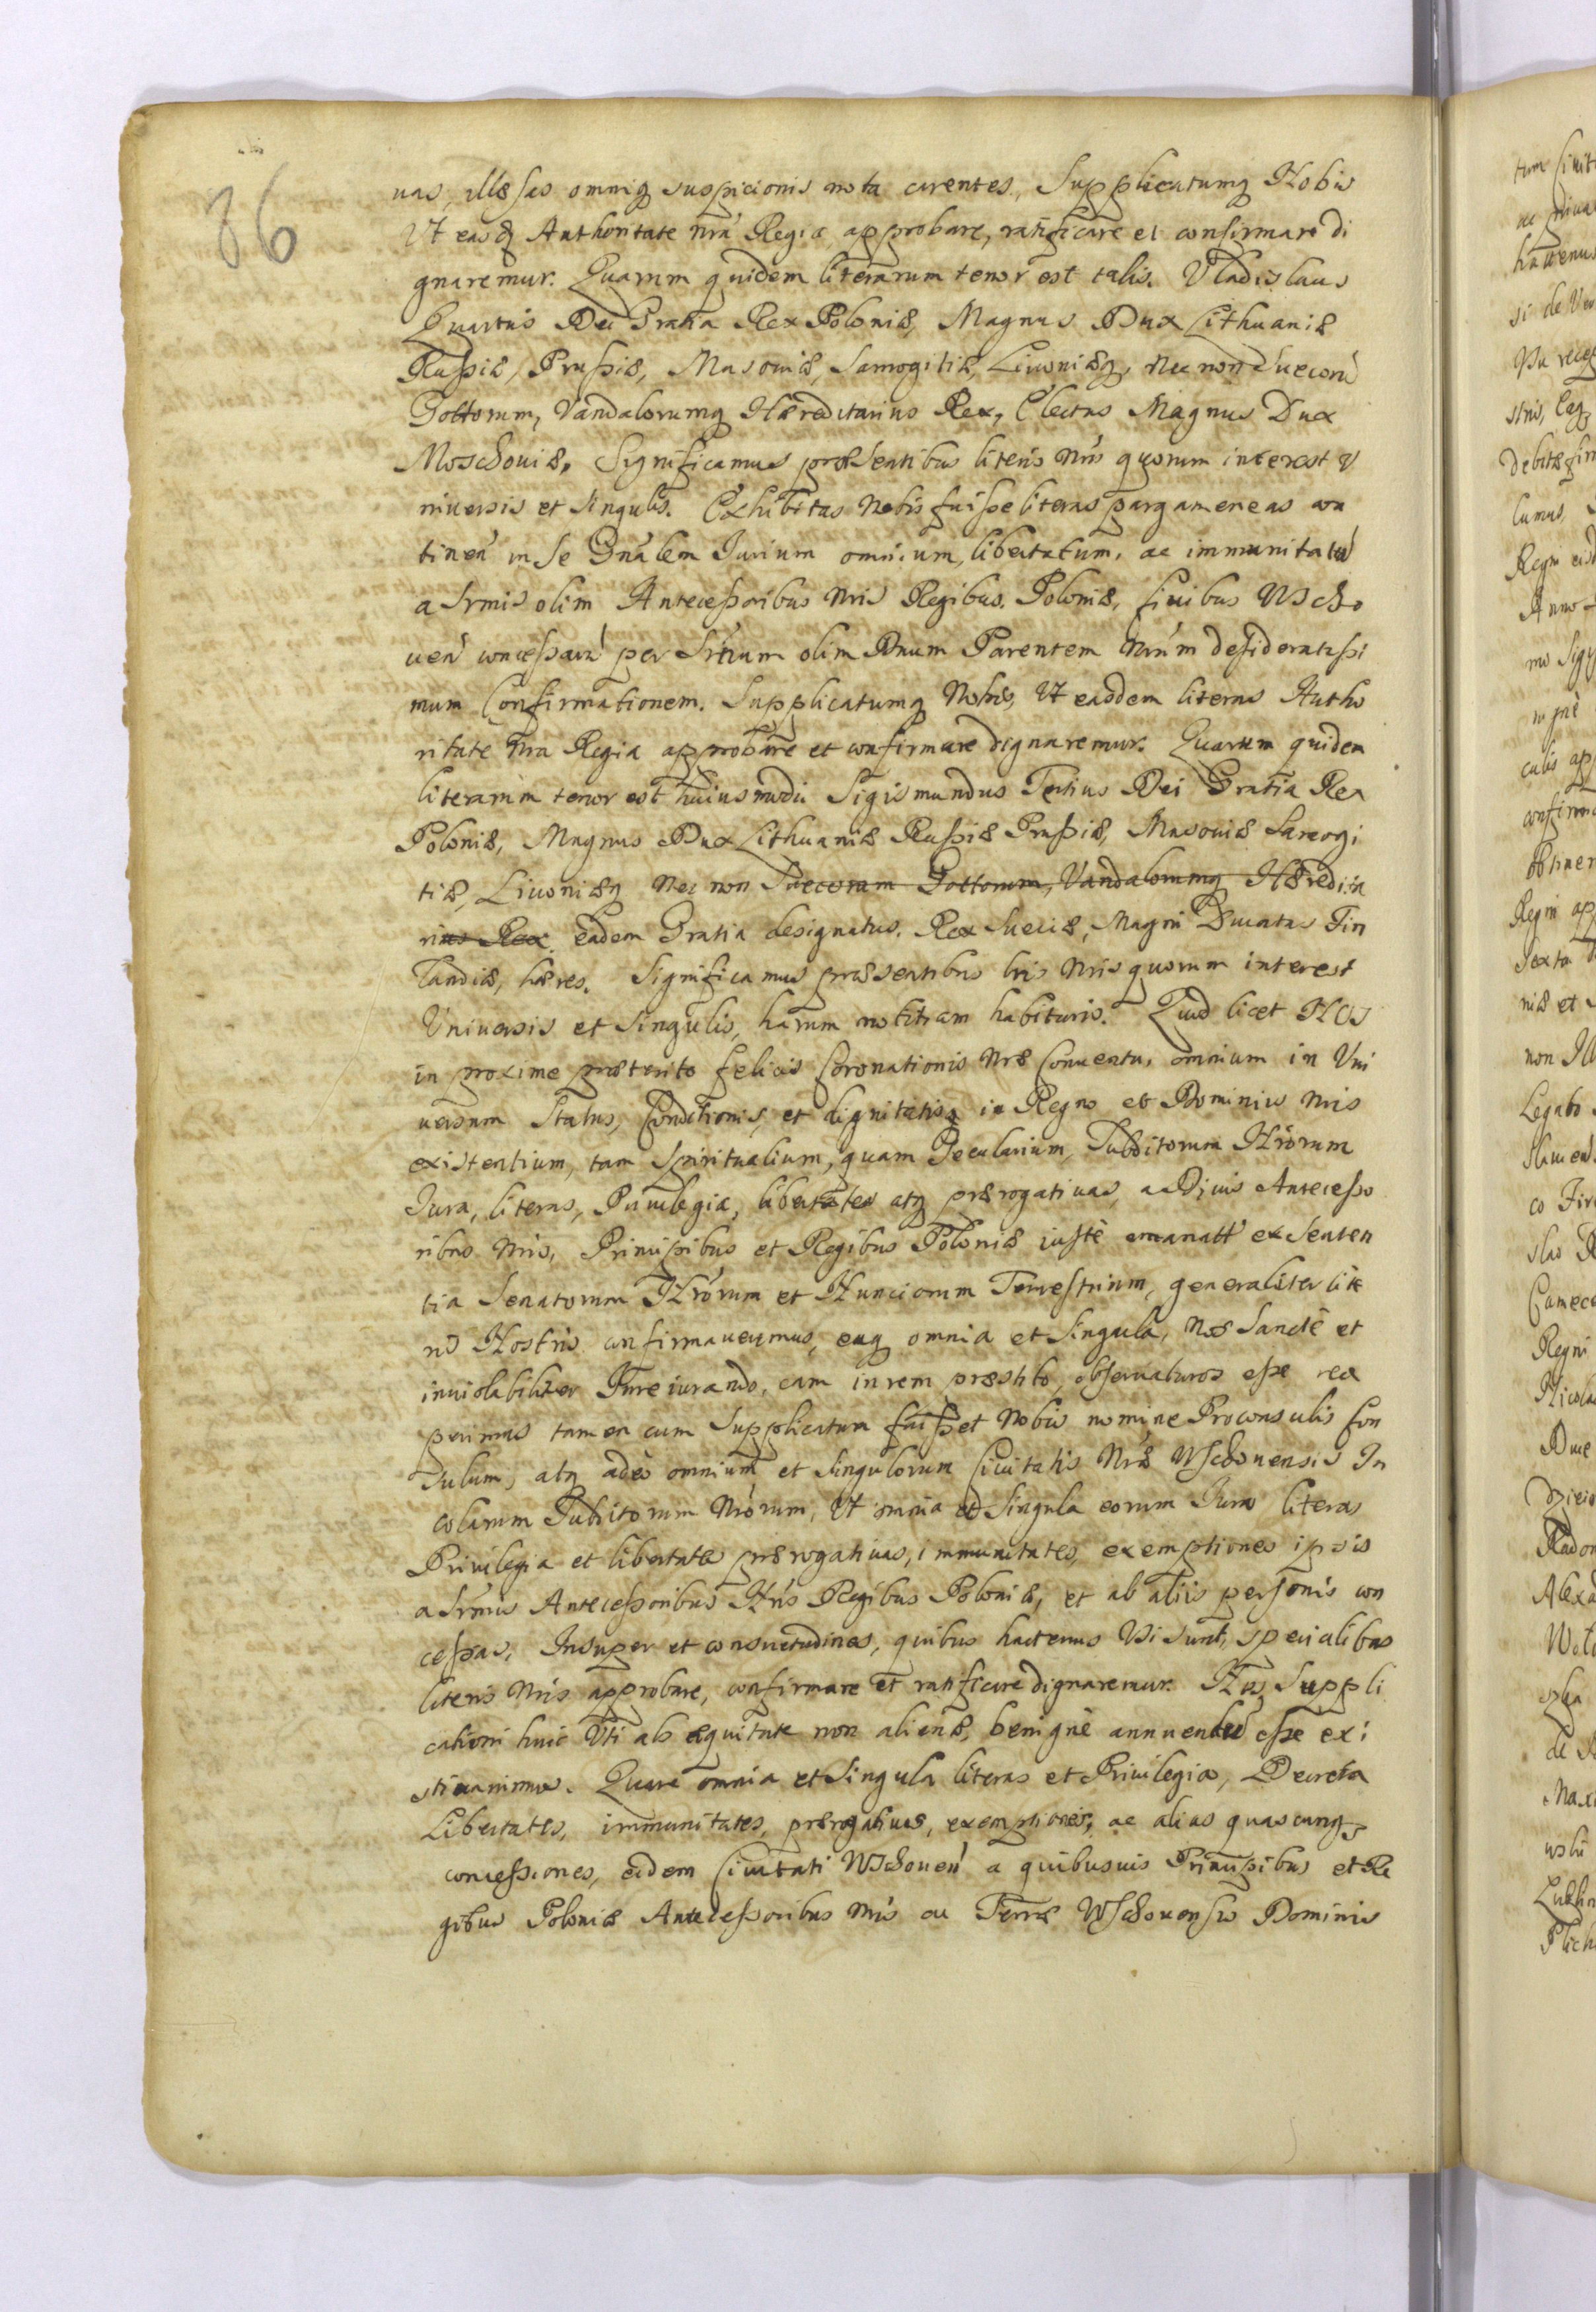 86
uas, illæsas omniq; suspicionis nota carentes, Supplicatumq; Nobis
Vt easq; Authoritate nrã Regia approbare, ratificare et confirmare di
gnaremur. Quarum quidem literarum tenor est talis. Vladislaus
Quartus Dei Gratia Rex Poloniæ, Magnus Dux Lithuaniæ
Rußiæ, Prußiæ, Masouiæ, Samogitiæ, Liuoniæq;, nec non Suecorũ
Gottorum, Vandalorumq; Hæreditarius Rex, Electus Magnus Dux
Moschouiæ. Significamus præsentibus literis nris quorum interest V
niuersis et singulis. Exhibitas Nobis fuiße literas pargameneas con
tineñ in se Gnãlem Iurium omnium, libertatum, ac immunitatũ
a Srmis olim Anteceßoribus nris Regibus Poloniæ, Ciuibus Wscho
ueñ conceßarũ per Srmum olim Dnum Parentem Nrum desideratißi
mum Confirmationem. Supplicatumq; Nobis, Vt easdem literas Autho
ritate nra Regia approbare et confirmare dignaremur. Quarum quidem
literarum tenor est huiusmodi Sigismundus Tertius Dei Gratia Rex
Poloniæ, Magnus Dux Lithuaniæ Rußiæ Prußiæ, Masouiæ Samogi
tiæ, Liuoniæq; Nec non Suecorum Gottorum, Vandalorumq; Hæredita
rius Rex, eadem Gratia designatus. Rex Sueciæ, Magni Ducatus Fin
landiæ, hæres. Significamus præsentibus lris Nris quorum interest
Vniuersis et singulis, harum notitiam habituris. Quod licet Nos
in proxime præterito felicis Coronationis nræ Conuentu, omnium in Vni
uersum Status, Conditionis, et dignitatis, in Regno et Dominijs nris
existentium, tam Spiritualium, quam Secularium, Subditorum Nrorum
Iura, literas, Priuilegia, libertates atq; prærogatiuas, a Diuis Anteceßo
ribus nris, Principibus et Regibus Poloniæ iustè emanatt ex Senten
tia Senatorum Nrorum et Nunciorum Terrestrium, generaliter lite
ris Nostris confirmauerimus, eaq; omnia et Singula, Nos Sanctè et
inuiolabiliter Iureiurando, eam in rem præstito, obseruaturos eße rece
perimus tamen cum Supplicatum fuißet Nobis nomine Proconsulis Con
sulum, atq; adeo omnium et Singulorum Ciuitatis Nræ Wschouensis In
colarum Subditorum Nrorum, Vt omnia et Singula eorum Iura literas
Priuilegia et libertates prærogatiuas, immunitates, exemptiones ipsis
a Srmis Anteceßoribus Nris Regibus Poloniæ, et ab aliis personis con
ceßas, Insuper et consuetudines, quibus hactenus Vsi sunt, specialibus
literis Nris approbare, confirmare et ratificare dignaremur. Nos Suppli
cationi huic Vti ab æquitate non alienæ, benignè annuendũ eße exi
stimauimus. Quare omnia et Singula literas et Priuilegia, Decreta
Libertates, immunitates, prærogatiuas, exemptiones, ac alias quascunq;
conceßiones, eidem Ciuitati Wschoueñ a quibusuis Principibus et Re
gibus Poloniæ Anteceßoribus Nris ac Terræ Wschouensis Dominis